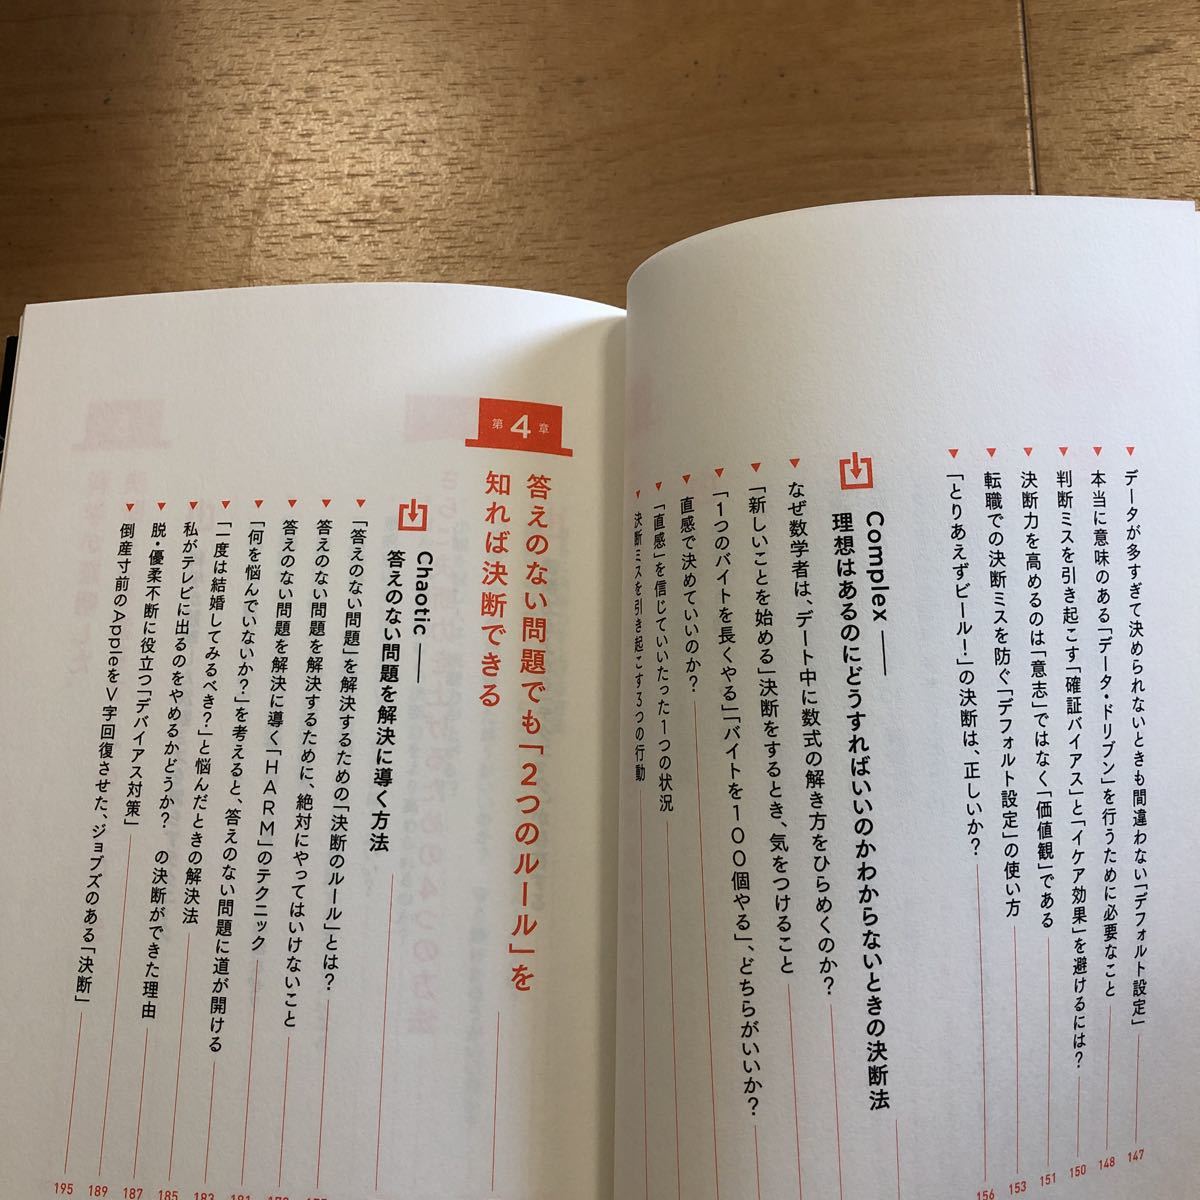 データが多すぎて決められないときも間違わない「デフォルト設定」
147
本当に意味のある「データ・ドリブン」を行うために必要なこと
148
判断ミスを引き起こす「確証バイアス」と「イケア効果」を避けるには？
150
決断力を高めるのは「意志」ではなく「価値観」である
151
転職での決断ミスを防ぐ「デフォルト設定」の使い方
153
「とりあえずビール！」の決断は、正しいか？
156
Complex ――
理想はあるのにどうすればいいのかわからないときの決断法
なぜ数学者は、デート中に数式の解き方をひらめくのか？
「新しいことを始める」決断をするとき、気をつけること
「1つのバイトを長くやる」「バイトを100個やる」、どちらがいいか？
直感で決めていいのか？
「直感」を信じていいたった1つの状況
決断ミスを引き起こす3つの行動
第4章
答えのない問題でも「2つのルール」を
知れば決断できる
Chaotic ――
答えのない問題を解決に導く方法
「答えのない問題」を解決するための「決断のルール」とは？
答えのない問題を解決するために、絶対にやってはいけないこと
答えのない問題を解決に導く「HARM」のテクニック
「何を悩んでいないか？」を考えると、答えのない問題に道が開ける
「一度は結婚してみるべき？」と悩んだときの解決法
183
私がテレビに出るのをやめるかどうか？ の決断ができた理由
185
脱・優柔不断に役立つ「デバイアス対策」
187
倒産寸前のAppleをV字回復させた、ジョブズのある「決断」
189
195